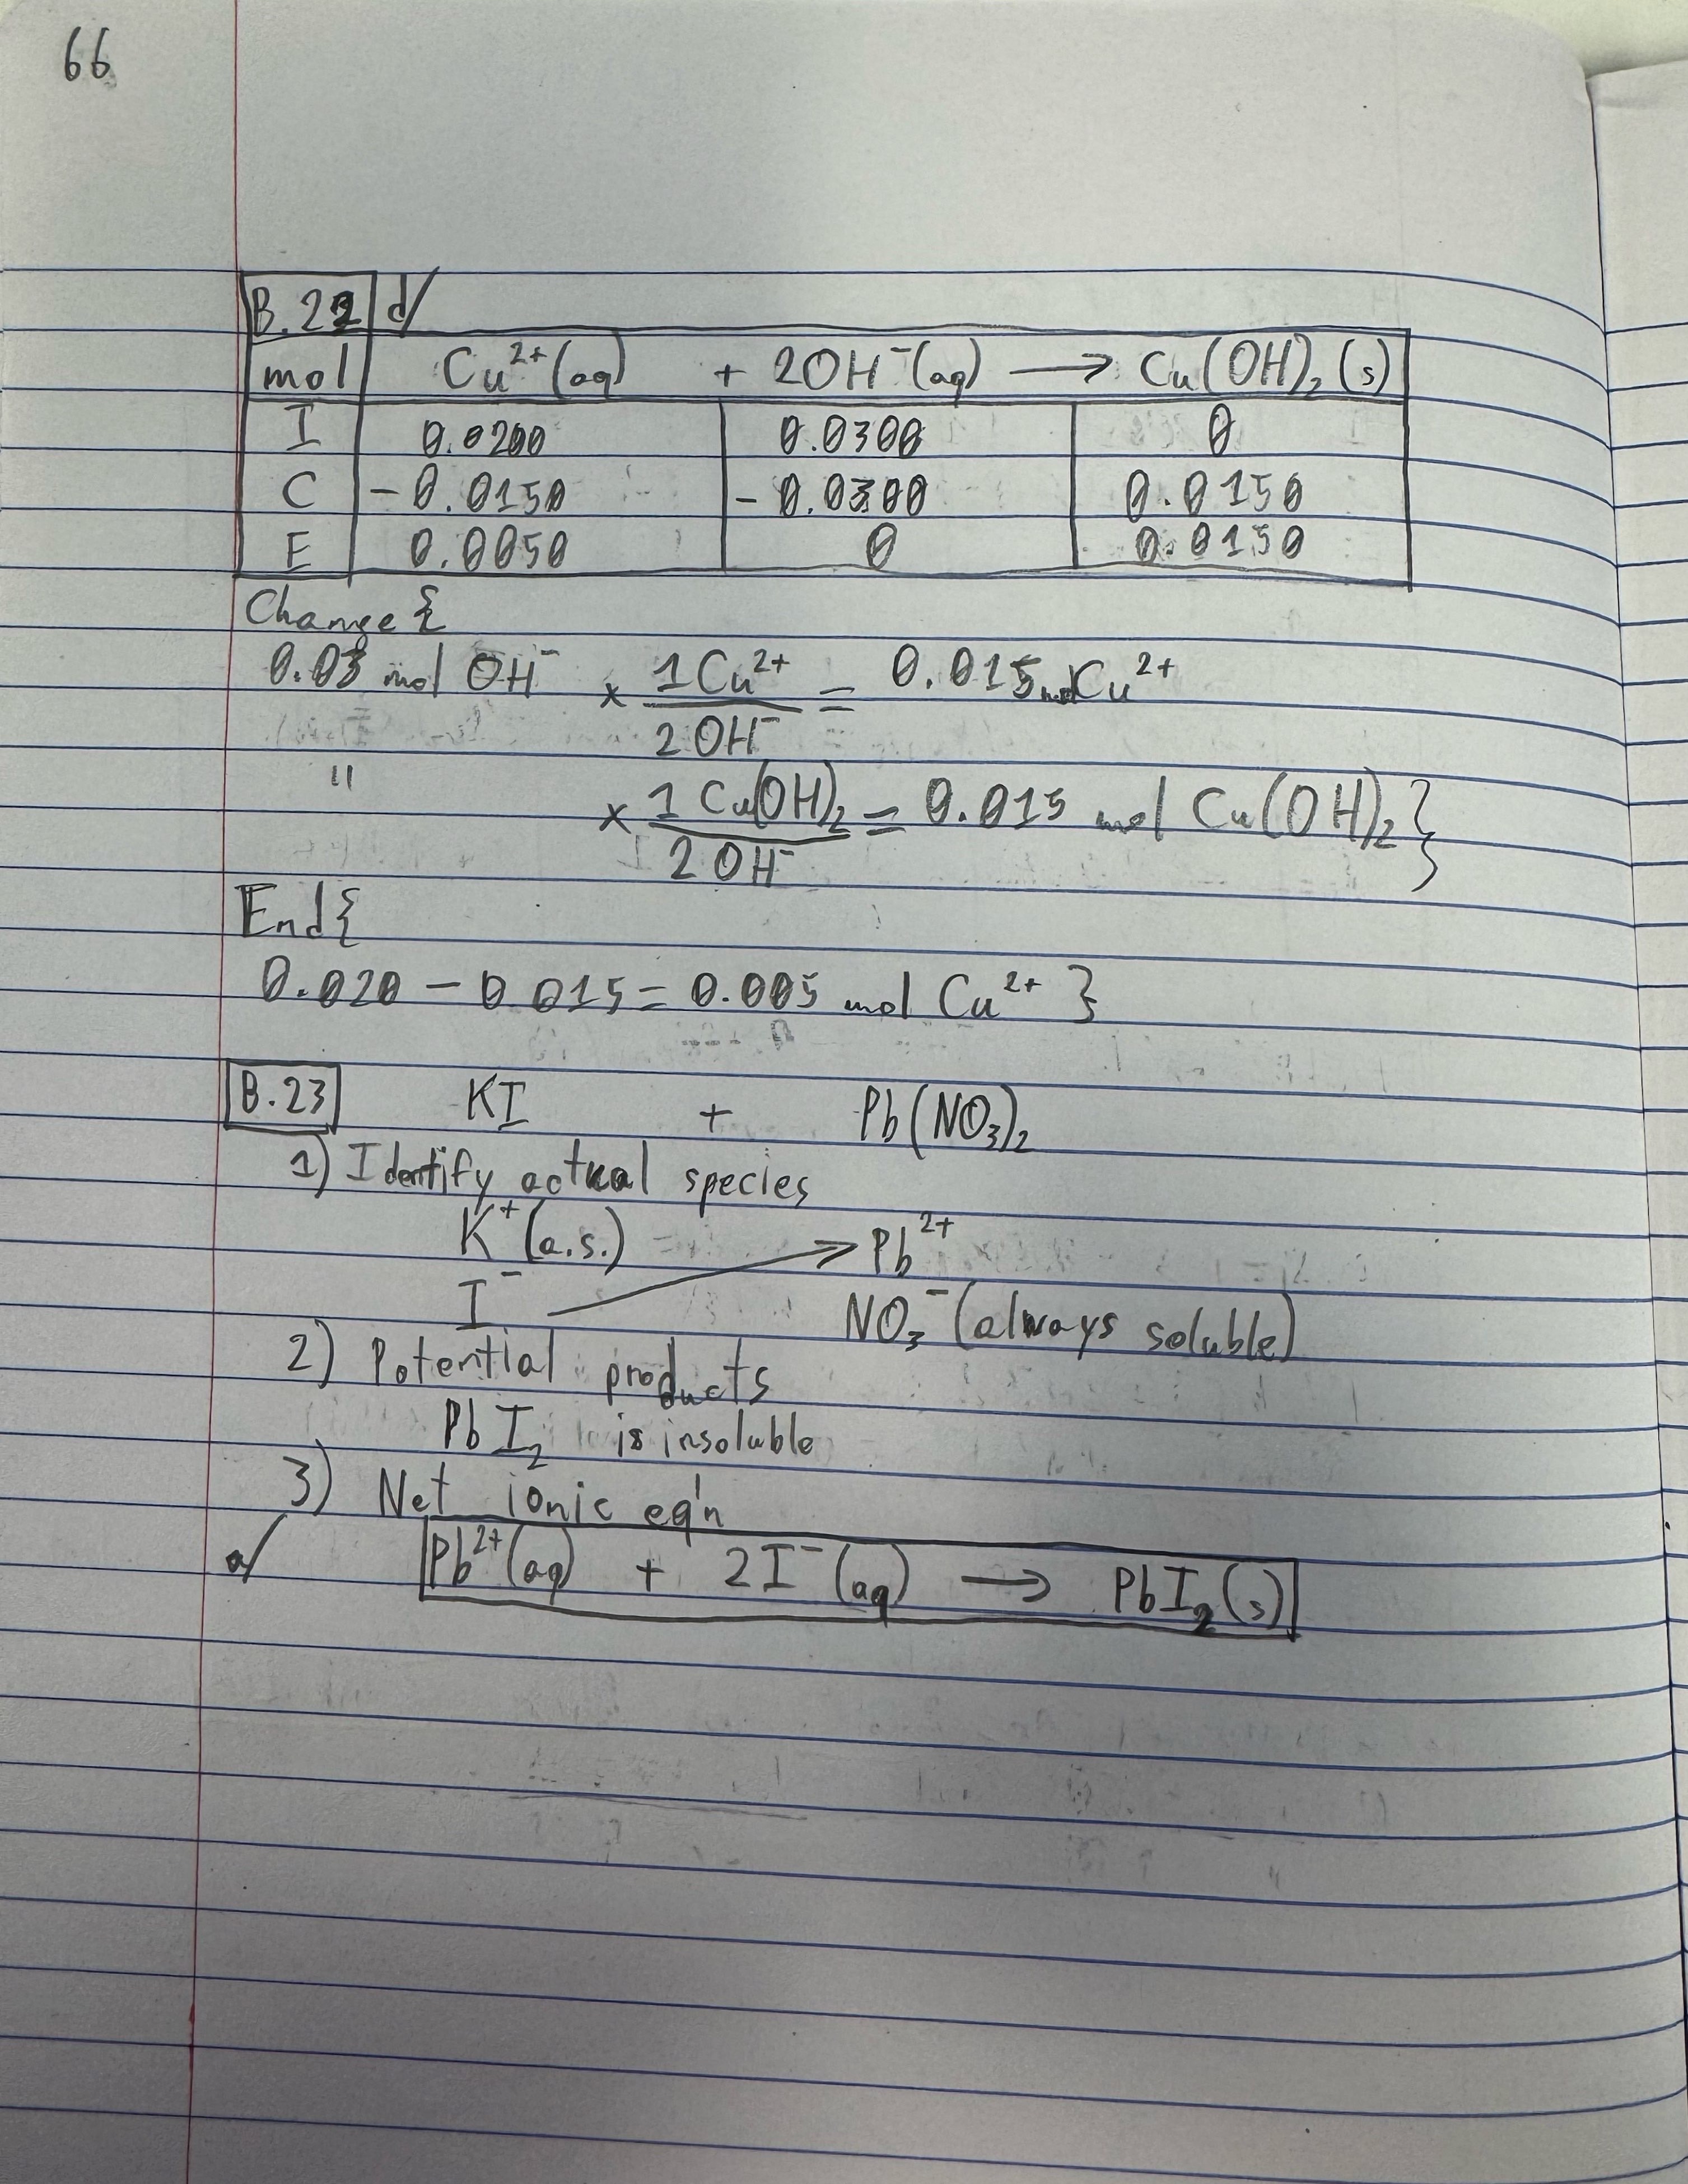 66
B.22 d/
mol Cu²⁺(aq) + 2OH⁻(aq) → Cu(OH)₂(s)
I 0.0200 0.0300 0
C -0.0150 -0.0300 0.0150
E 0.0050 0 0.0150
Change {
0.03 mol OH⁻ × 1Cu²⁺/2OH⁻ = 0.015 mol Cu²⁺
" × 1 Cu(OH)₂/2OH⁻ = 0.015 mol Cu(OH)₂}
End{
0.020 - 0.015 = 0.005 mol Cu²⁺ }
B.23 KI + Pb(NO₃)₂
1) Identify actual species
K⁺(a.s.) → Pb²⁺
I⁻ NO₃⁻ (always soluble)
2) Potential products
PbI₂ is insoluble
3) Net ionic eq'n
a/ Pb²⁺(aq) + 2I⁻(aq) → PbI₂(s)